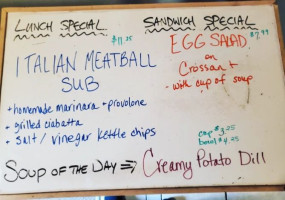 LUNCH SPECIAL
$11.25
ITALIAN MEATBALL
SUB
• homemade marinara • provolone
• grilled ciabatta
• salt / vinegar kettle chips
SANDWICH SPECIAL
$7.99
EGG SALAD
on
Crossant
- with cup of soup
cup $3.25
bowl $4.25
SOUP OF THE DAY ⇒ Creamy Potato Dill